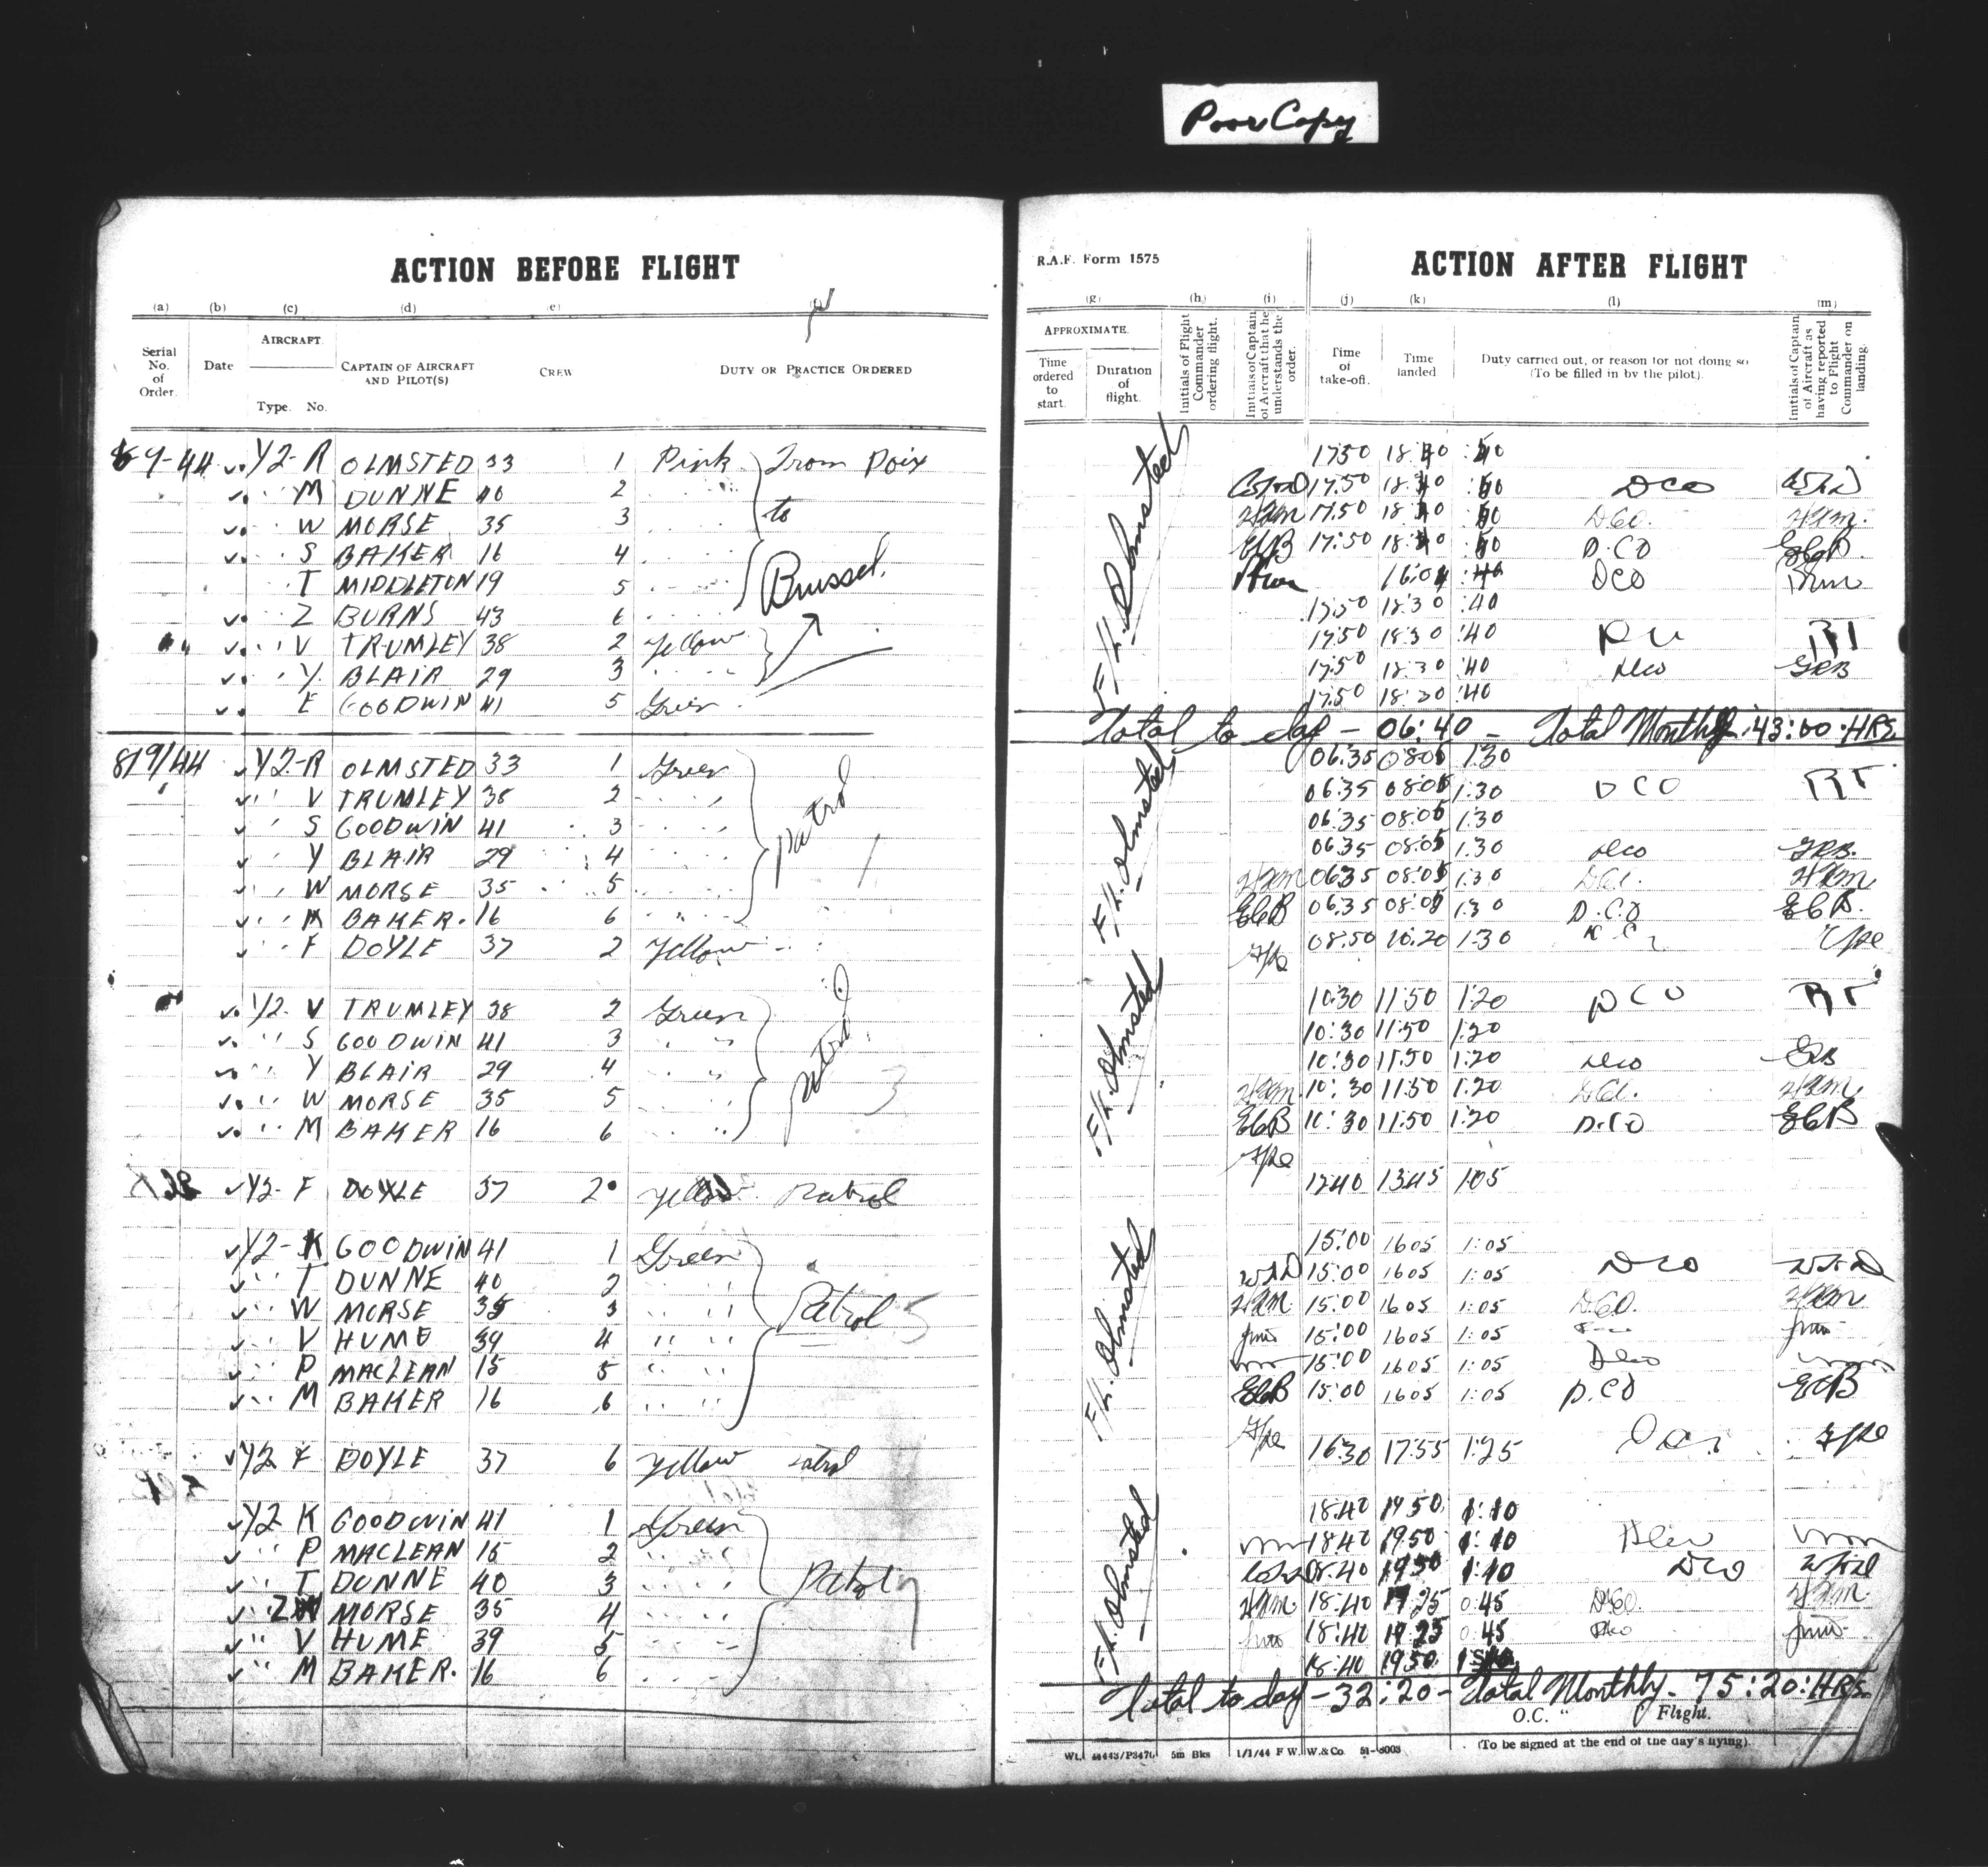 Poor Copy
ACTION BEFORE FLIGHT
(a) (b) (c) (d) (e)
Serial No. of Order. Date AIRCRAFT. Type. No. CAPTAIN OF AIRCRAFT AND PILOT(S) CREW DUTY OR PRACTICE ORDERED
9-44 Y2-R OLMSTED 33 1 Pink From Poix
" M DUNNE 40 2 " "
" W MORSE 35 3 " " to
" S BAKER 16 4 " "
T MIDDLETON 19 5 " " Brussel.
" Z BURNS 43 6 " "
" V TRUMLEY 38 2 Yellow
" Y BLAIR 29 3 " "
E GOODWIN 41 5 Green
8/9/44 Y2-R OLMSTED 33 1 Green
" V TRUMLEY 38 2 " " Patrol
" S GOODWIN 41 3 " " 1
" Y BLAIR 29 4 " "
" W MORSE 35 5 " "
" M BAKER. 16 6 " "
" F DOYLE 37 2 Yellow
Y2- V TRUMLEY 38 2 Green
" S GOODWIN 41 3 " " Patrol
" Y BLAIR 29 4 " " 3
" W MORSE 35 5 " "
" M BAKER 16 6 " "
Y2- F DOYLE 37 2 Yellow Patrol
Y2- K GOODWIN 41 1 Green
" T DUNNE 40 2 " "
" W MORSE 35 3 " " Patrol 5
" V HUME 39 4 " "
" P MACLEAN 15 5 " "
" M BAKER 16 6 " "
Y2 F DOYLE 37 6 Yellow Patrol
Y2 K GOODWIN 41 1 Green
" P MACLEAN 15 2 " "
" T DUNNE 40 3 " " Patrol 7
" Z MORSE 35 4 " "
" V HUME 39 5 " "
" M BAKER. 16 6 " "
R.A.F. Form 1575
ACTION AFTER FLIGHT
(g) (h) (i) (j) (k) (l) (m)
APPROXIMATE. Time ordered to start. Duration of flight. Initials of Flight Commander ordering flight. Initials of Captain of Aircraft that he understands the order. Time of take-off. Time landed Duty carried out, or reason for not doing so (To be filled in by the pilot). Initials of Captain of Aircraft as having reported to Flight Commander on landing.
F/L. Olmsted
17:50 18:30 :40
17:50 18:30 :40 DCO
17:50 18:30 :40 DCO.
17:50 18:30 :40 D.CO EGB.
DCO
17:50 18:30 :40
17:50 18:30 :40 RT
17:50 18:30 :40 DCO GRB
17:50 18:30 :40
Total to day - 06:40 - Total Monthly :43:00 HRS.
F/L. Olmsted
06:35 08:05 1:30
06:35 08:05 1:30 DCO RT
06:35 08:05 1:30
06:35 08:05 1:30 DCO GRB.
HAM 06:35 08:05 1:30 DCO. HAM
EGB 06:35 08:05 1:30 D.C.O EGB.
08:50 10:20 1:30
F/L. Olmsted
10:30 11:50 1:20 DCO RT
10:30 11:50 1:20
10:30 11:50 1:20 DCO GRB
HAM 10:30 11:50 1:20 DCO. HAM
EGB 10:30 11:50 1:20 D.CO EGB
12:40 13:45 1:05
F/L. Olmsted
15:00 1605 1:05
WFD 15:00 1605 1:05 DCO WFD
HAM 15:00 1605 1:05 DCO. HAM
15:00 1605 1:05
15:00 1605 1:05 DCO
EGB 15:00 1605 1:05 D.CO EGB
16:30 17:55 1:25
F/L. Olmsted
18:40 19:50 1:10
18:40 19:50 1:10 DCO
18:40 19:50 1:10 DCO WFD
HAM. 18:40 19:25 0:45 DCO. HAM.
18:40 19:25 0:45 DCO
18:40 19:50
Total to day - 32:20 - Total Monthly - 75:20:HRS.
O.C. " Flight.
(To be signed at the end of the day's flying).
5m Bks 1/1/44 F W. W. & Co. 51-